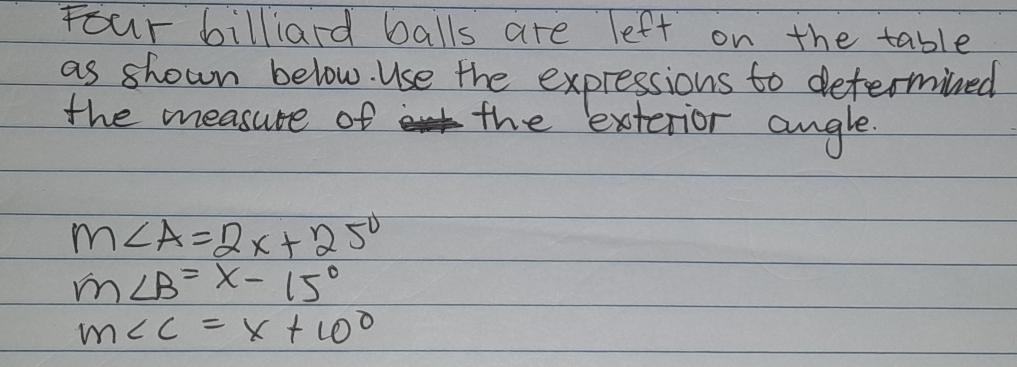 Four billiard balls are left on the table
as shown below. Use the expressions to determined
the measure of the exterior angle.
m<A=2x+25°
m<B= x- 15°
m<C = x +10°